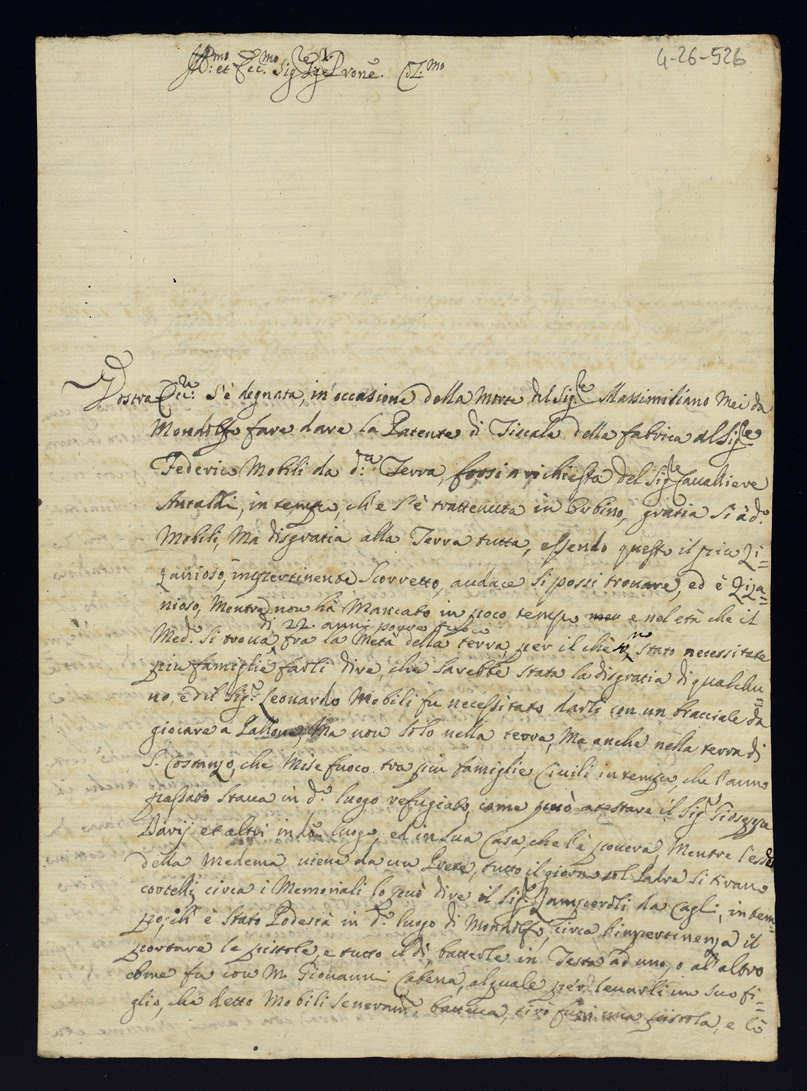 4-26-526
Ill.mo et Ecc.mo Sig.re Sig.re Prone Col.mo
Vostra Ecc.za s'è degnata, in occasione della morte del Sig.re Massimiliano Mei da
Mondolfo fare dare la Patente di Fiscale della fabrica al Sig.re
Federico Mobili da d.a Terra, forsi a richiesta del Sig.re Cavalliere
Antaldi, in tempo, ch'e s'è trattenuta in Urbino, gratia si à d.o
Mobili, ma disgratia alla Terra tutta, essendo questo il piu zi=
zanioso, impertinente scorretto, audace si possi trovare, ed è ziza=
nioso, mentre non hà mancato in poco tempo e nel età che il
di 22 anni poco più
Med.o si trova, fra la metà della terra, per il che è stato necessitate
piu famiglie farli dire, che sarebbe stata la disgratia di qualchu=
no, ed il Sig.r Leonardo Mobili fu necessitato darli con un bracciale da
giocare a Pallone, Ma non solo nella terra, Ma anche nella terra di
S. Costanzo, che mise fuoco tra piu famiglie Civili in tempo, che l'anno
passato stava in d.o luogo refugiato, come può attestare il Sig.r
et altri in d.o luogo, ed in sua Casa, che l'è povera, mentre
della medema viene da un Prete, tutto il giorno col Padre si tirano
cortelli, circa i Memoriali lo può dire il Sig.r da Cagli, in tem=
po, ch' è stato Podestà in d.o luogo di Mondolfo, circa l'impertinenza il
portare le pistole, e tutto il dì batterle in Testa ad uno, o all'altro
come fu con M. Giovanni Catena, al quale per levarli un suo fi=
glio, che detto Mobili severam.te batteva, tirò fuori una pistola, e lò